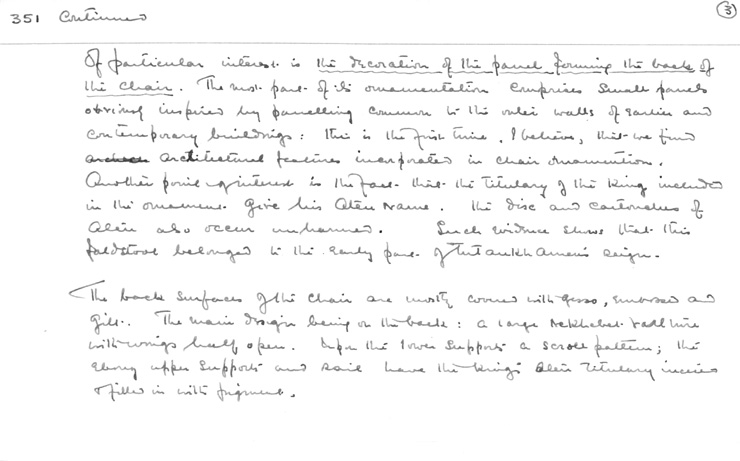 351 Continued
3
Of particular interest is the decoration of the panel forming the back of
the chair. The most part of its ornamentation comprises small panels
obviously inspired by panelling common to the outer walls of earlier and
contemporary buildings: this is the first time, I believe, that we find
architectural features incorporated in chair ornamention.
Another point of interest is the fact that the titulary of the King included
in the ornament give his Aten Name. The disc and cartouches of
Aten also occur unharmed. Such evidence shows that this
faldstool belonged to the early part of Tutankhamen's reign.
The back surfaces of the chair are mostly covered with gesso, embossed and
gilt. The main design being on the back: a large Nekhebet vulture
with wings half open. Upon the lower supports a scroll pattern; the
ebony upper supports and rail have the King's Aten titulary incised
& filled in with pigment.